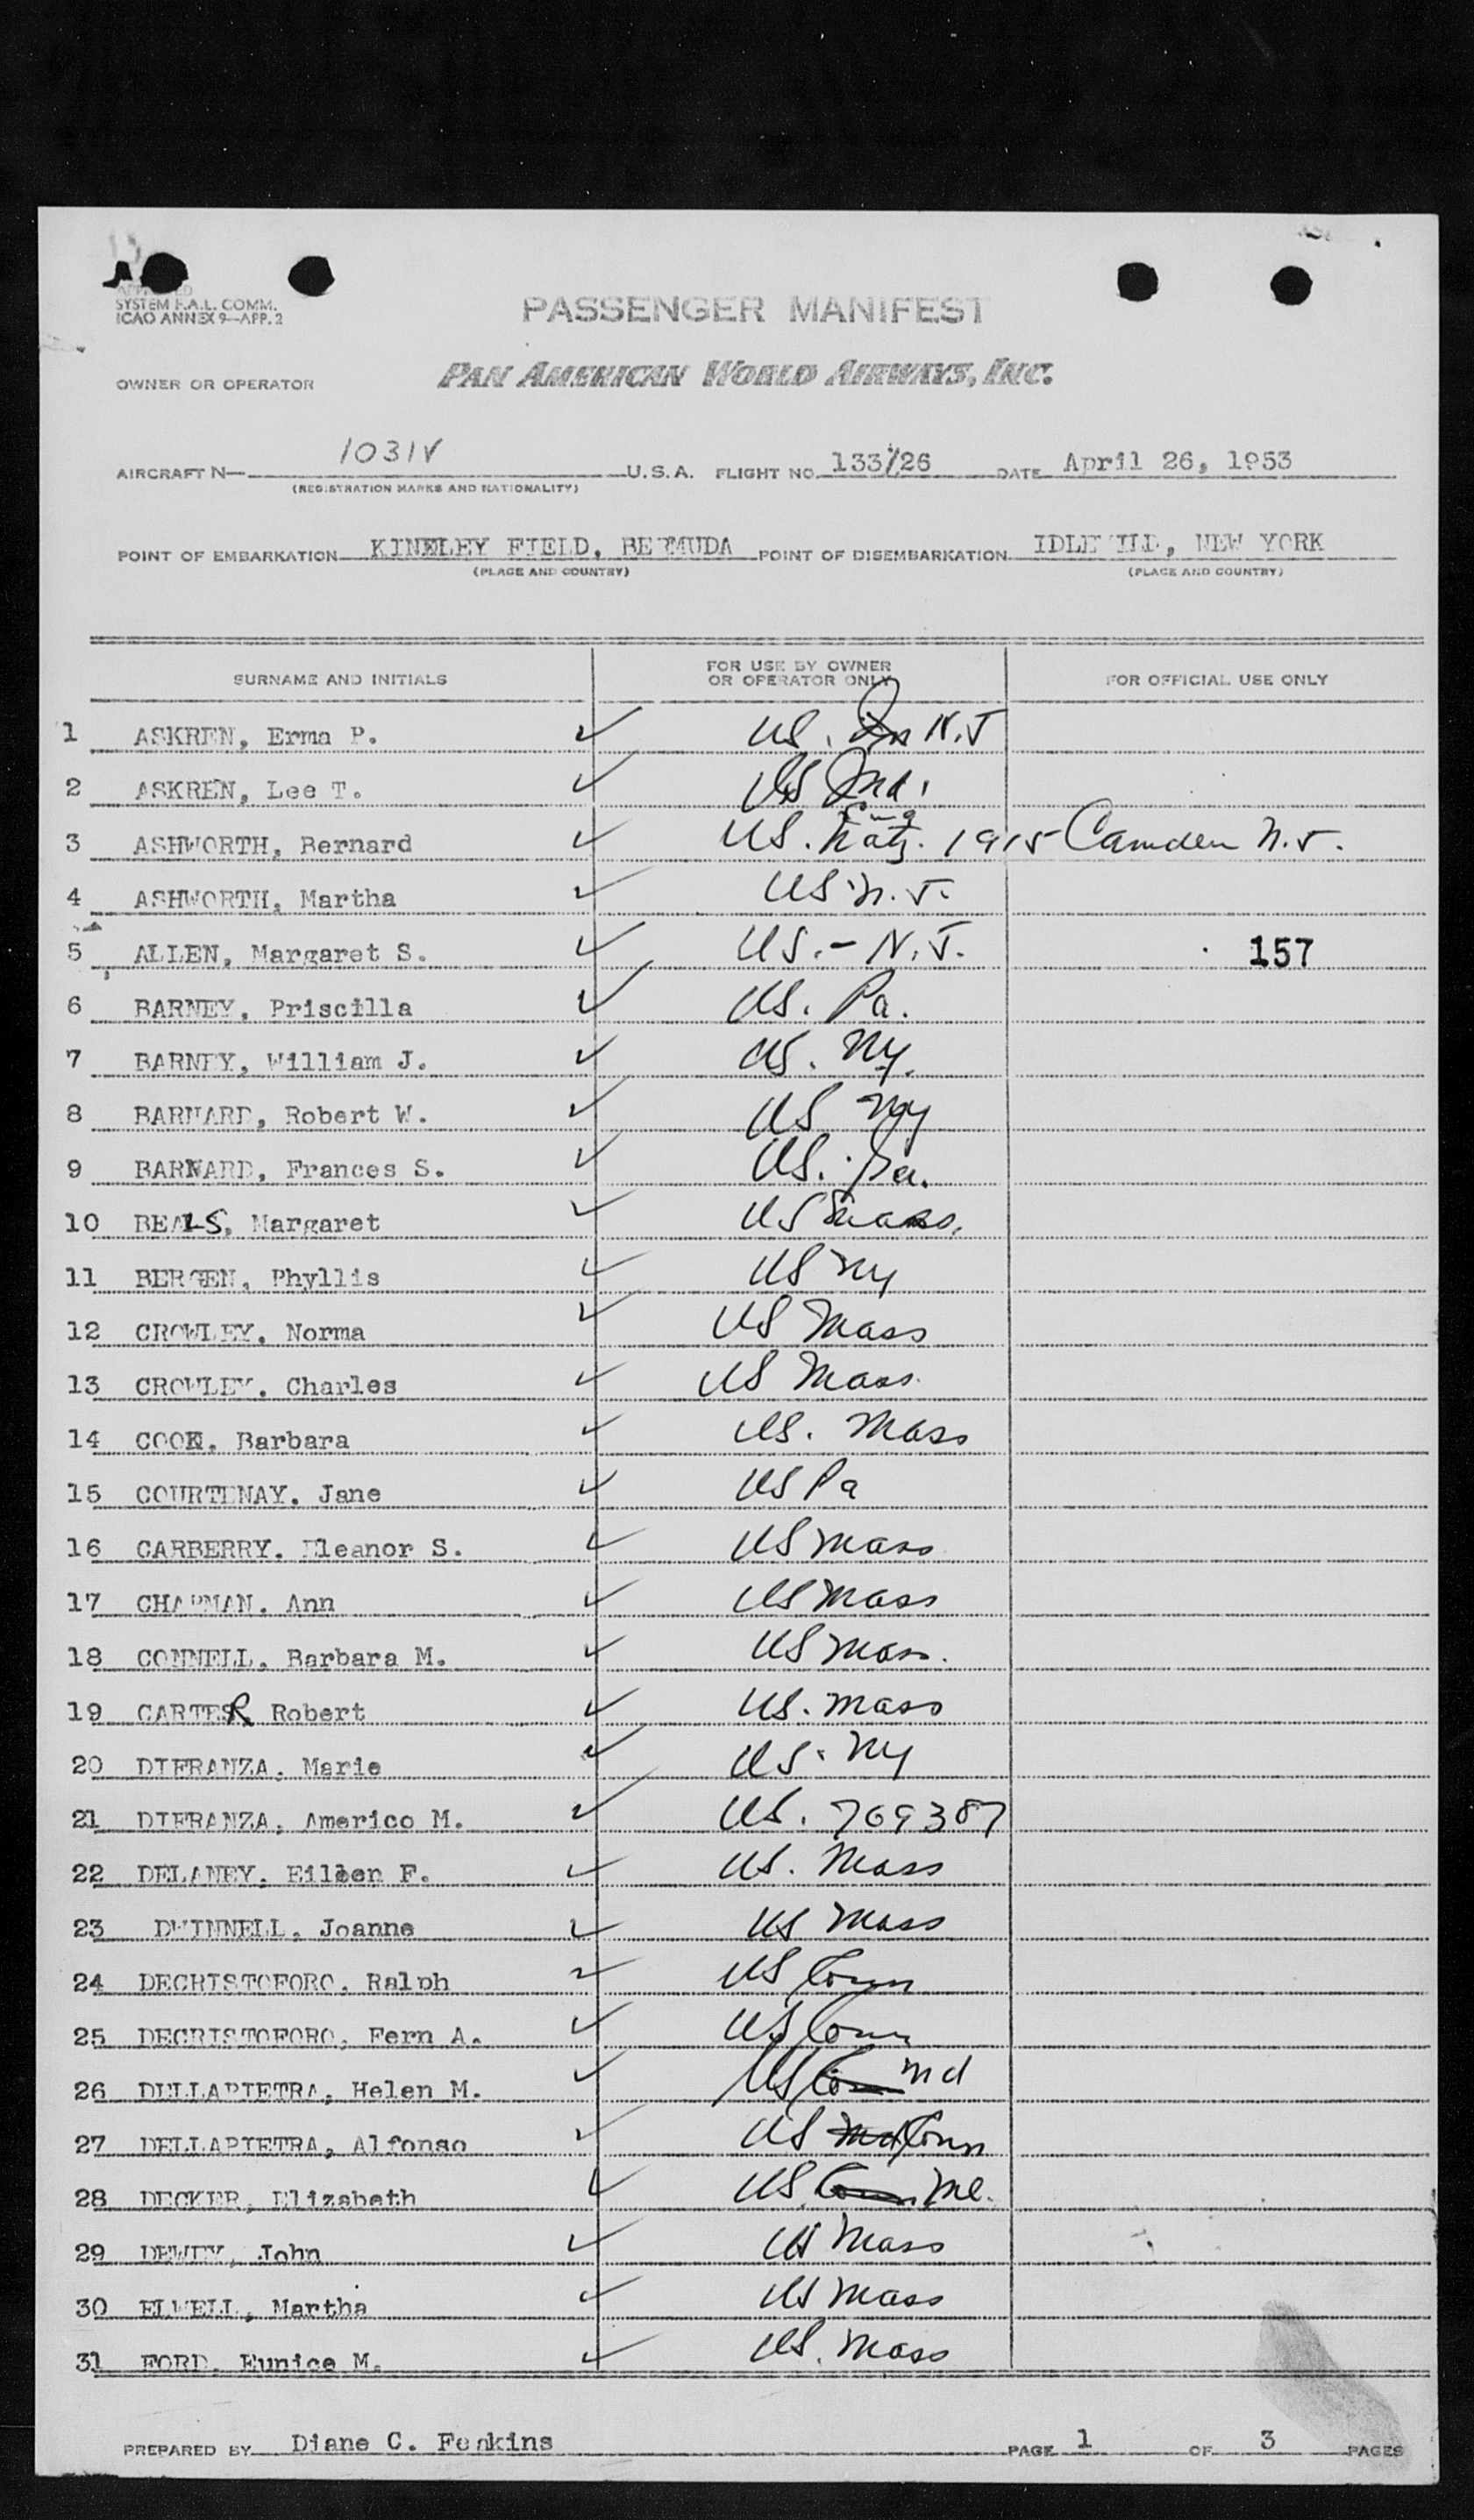 APPROVED
SYSTEM F.A.L. COMM.
ICAO ANNEX 9—APP. 2
PASSENGER MANIFEST
OWNER OR OPERATOR PAN AMERICAN WORLD AIRWAYS, INC.
AIRCRAFT N— 1031V U.S.A. FLIGHT NO. 133/26 DATE April 26, 1953
(REGISTRATION MARKS AND NATIONALITY)
POINT OF EMBARKATION KINDLEY FIELD, BERMUDA POINT OF DISEMBARKATION IDLEWILD, NEW YORK
(PLACE AND COUNTRY) (PLACE AND COUNTRY)
SURNAME AND INITIALS FOR USE BY OWNER OR OPERATOR ONLY FOR OFFICIAL USE ONLY
1 ASKREN, Erma P. ✓ US. N.J
2 ASKREN, Lee T. ✓ US Ind.
3 ASHWORTH, Bernard ✓ US. Natz. 1915 Camden N.J.
4 ASHWORTH, Martha ✓ US N.J.
5 ALLEN, Margaret S. ✓ US.- N.J. 157
6 BARNEY, Priscilla ✓ US. Pa.
7 BARNEY, William J. ✓ US. NY.
8 BARNARD, Robert W. ✓ US NY
9 BARNARD, Frances S. ✓ US. Pa.
10 BEALS, Margaret ✓ US Mass.
11 BERGEN, Phyllis ✓ US NY
12 CROWLEY. Norma ✓ US Mass
13 CROWLEY. Charles ✓ US Mass.
14 COOK. Barbara ✓ US. Mass
15 COURTENAY. Jane ✓ US Pa
16 CARBERRY. Eleanor S. ✓ US Mass
17 CHAPMAN. Ann ✓ US Mass
18 CONNELL. Barbara M. ✓ US Mass.
19 CARTER Robert ✓ US. Mass
20 DIFRANZA. Marie ✓ US. NY
21 DIFRANZA, Americo M. ✓ US. 769387
22 DELANEY. Eileen F. ✓ US. Mass
23 DWINNELL, Joanne ✓ US Mass
24 DECRISTOFORO. Ralph ✓ US Conn
25 DECRISTOFORO, Fern A. ✓ US Conn
26 DELLAPIETRA, Helen M. ✓ US Conn Md
27 DELLAPIETRA, Alfonso ✓ US Md Conn
28 DECKER, Elizabeth ✓ US Conn Me.
29 DEWEY, John ✓ US Mass
30 ELWELL, Martha ✓ US Mass
31 FORD. Eunice M. ✓ US. Mass
PREPARED BY Diane C. PAGE 1 OF 3 PAGES